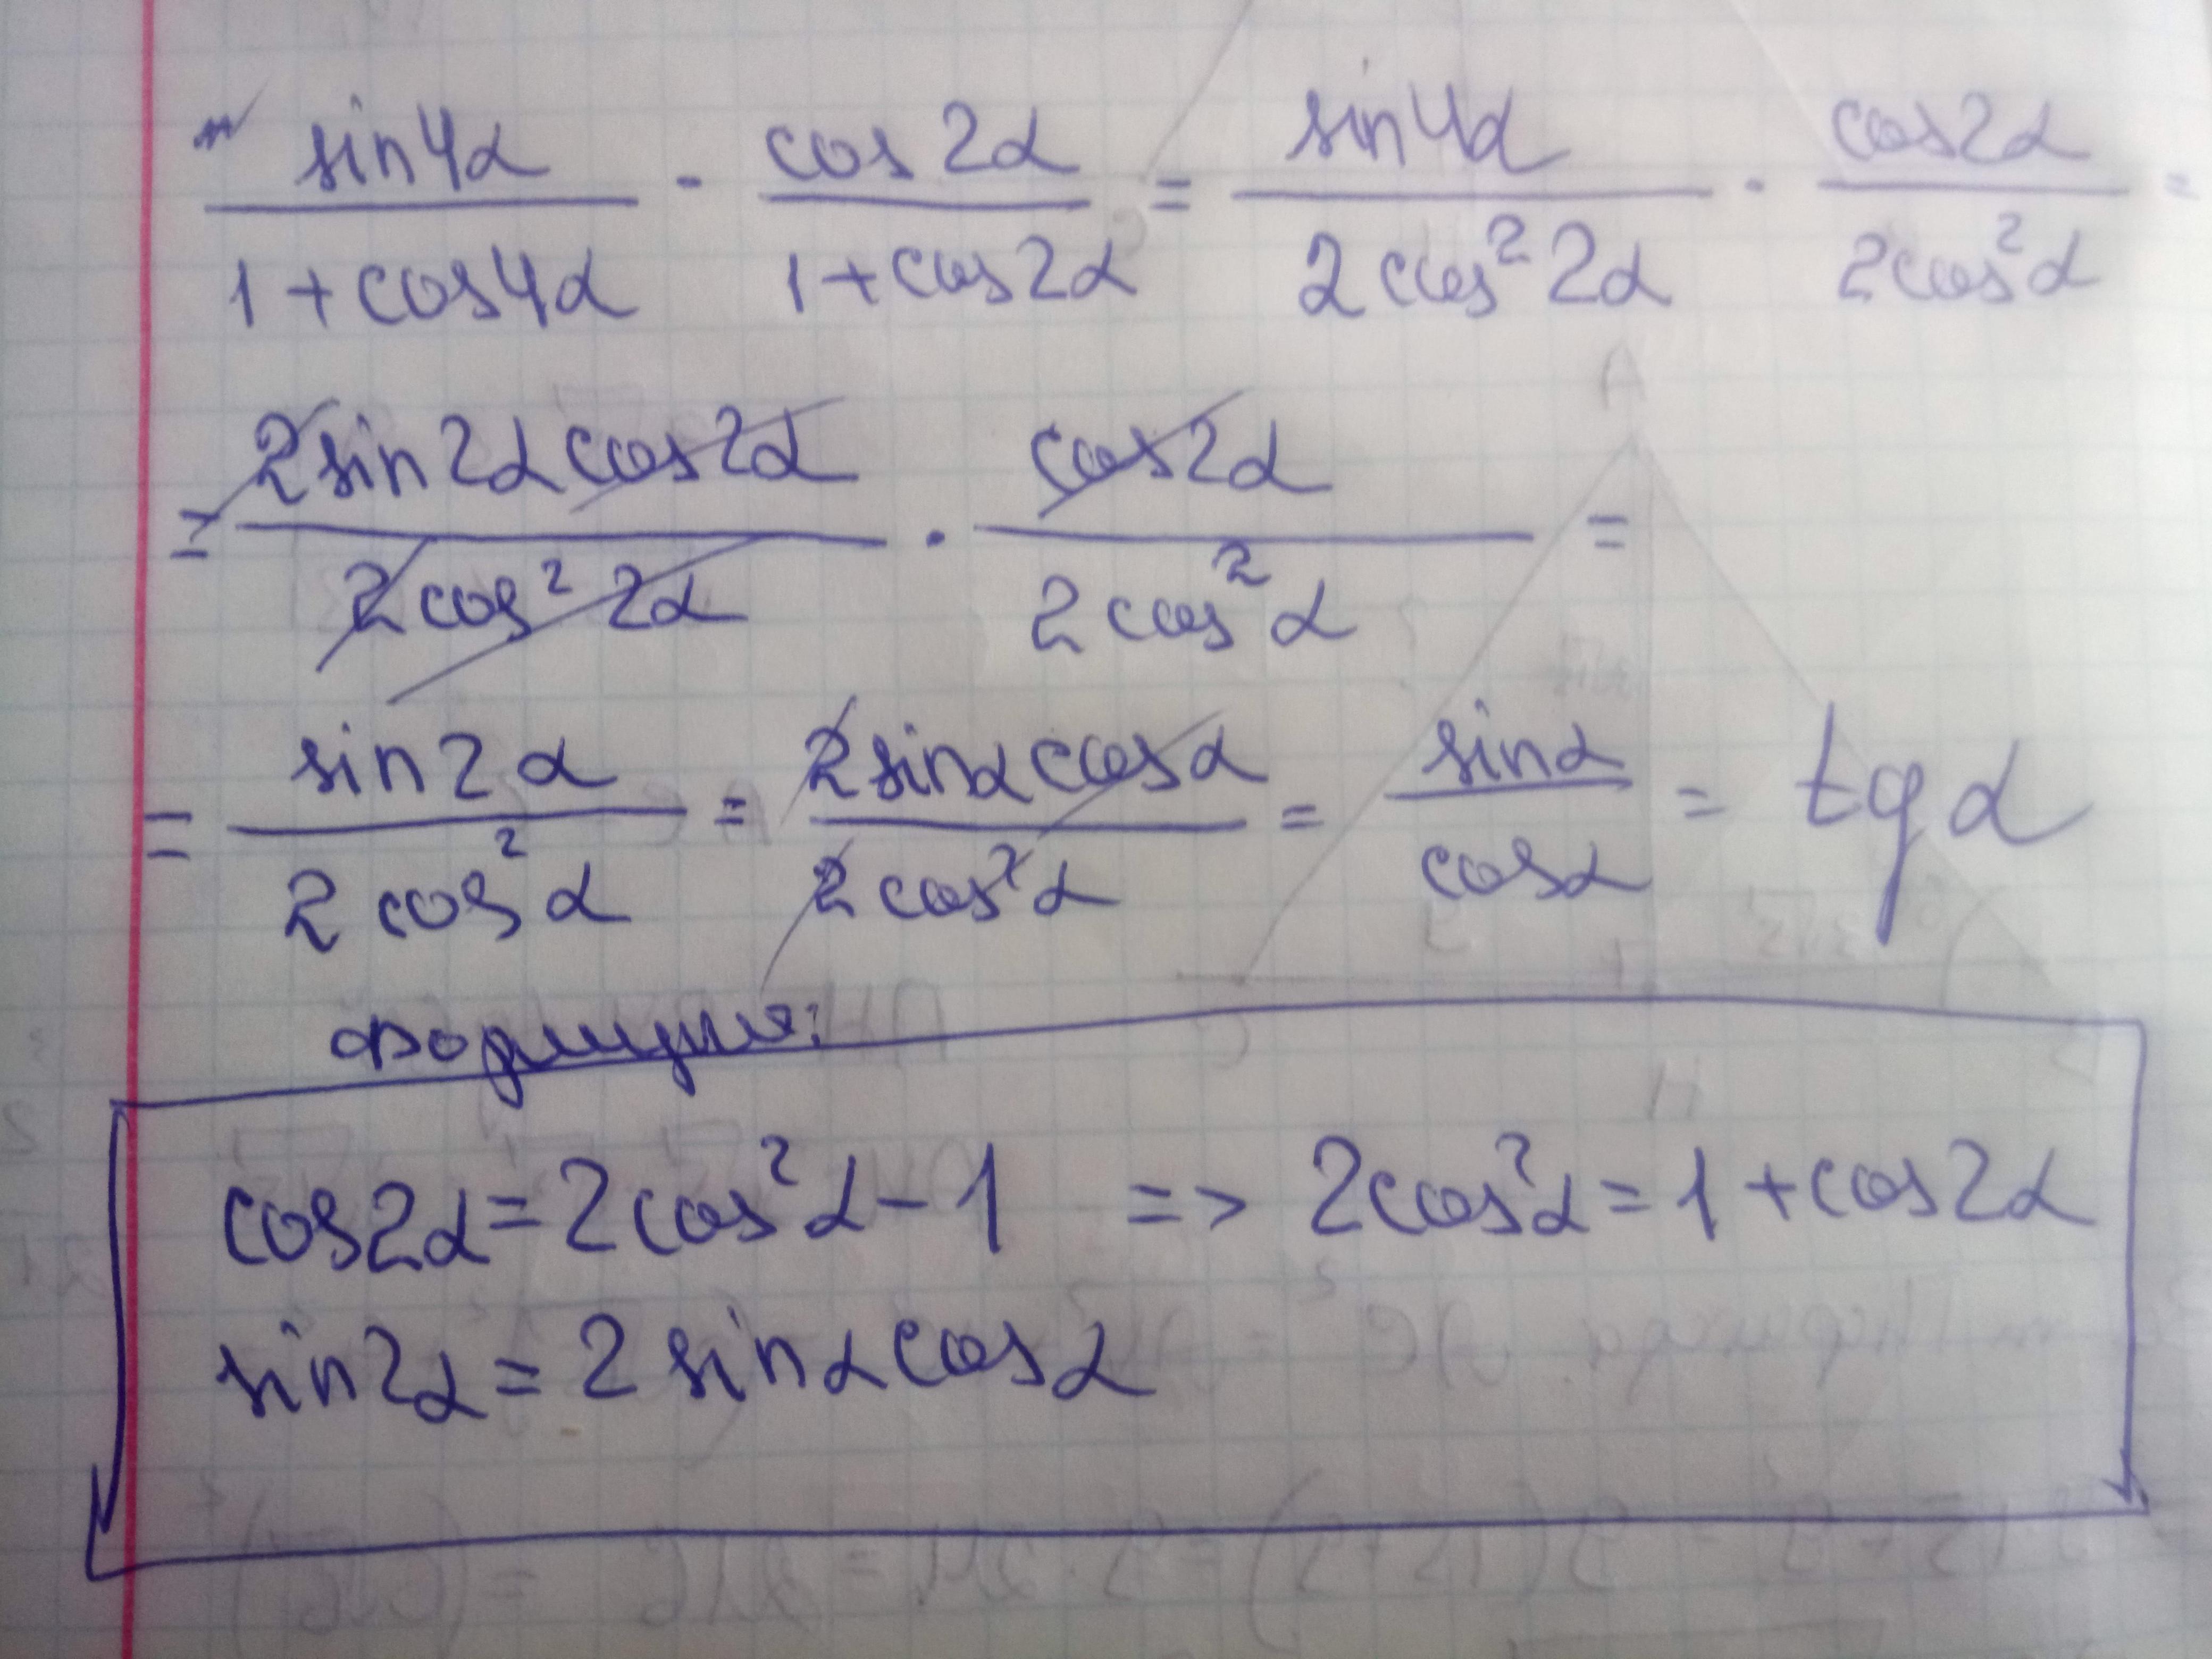 sin4α/(1+cos4α) · cos2α/(1+cos2α) = sin4α/(2cos²2α) · cos2α/(2cos²α) =
= 2sin2αcos2α/(2cos²2α) · cos2α/(2cos²α) =
= sin2α/(2cos²α) = 2sinαcosα/(2cos²α) = sinα/cosα = tgα
Формулы:
cos2α=2cos²α-1 => 2cos²α=1+cos2α
sin2α=2sinαcosα